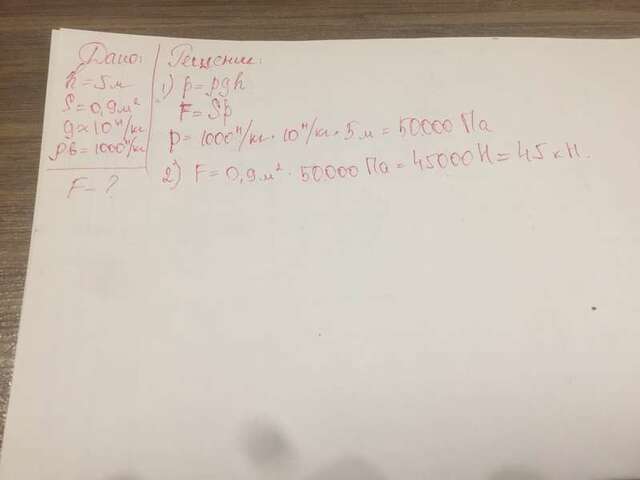 Дано:
h = 5 м
S = 0,9 м²
g ≈ 10 н/кг
ρв = 1000 н/кг
F - ?
Решение:
1) p = ρgh
F = Sp
p = 1000 н/кг · 10 н/кг · 5 м = 50000 Па
2) F = 0,9 м² · 50000 Па = 45000 Н = 45 кН.